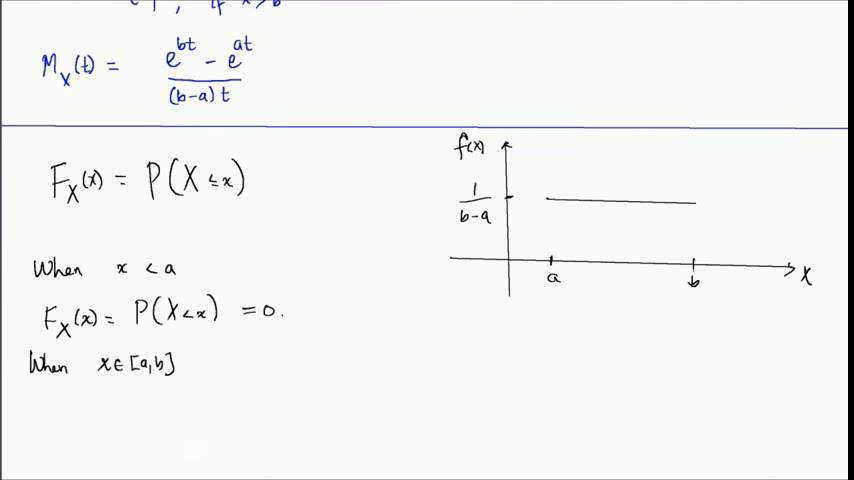 1, if x > b
M_X(t) = (e^{bt} - e^{at}) / ((b-a)t)
F_X(x) = P(X ≤ x)
When x < a
F_X(x) = P(X < x) = 0.
When x ∈ [a,b]
f(x)
1/(b-a)
a
b
X